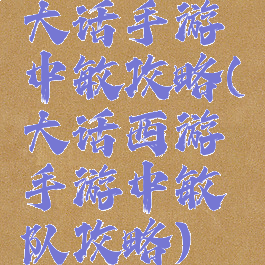 大话手游
中敏攻略(
大话西游
手游中敏
队攻略)